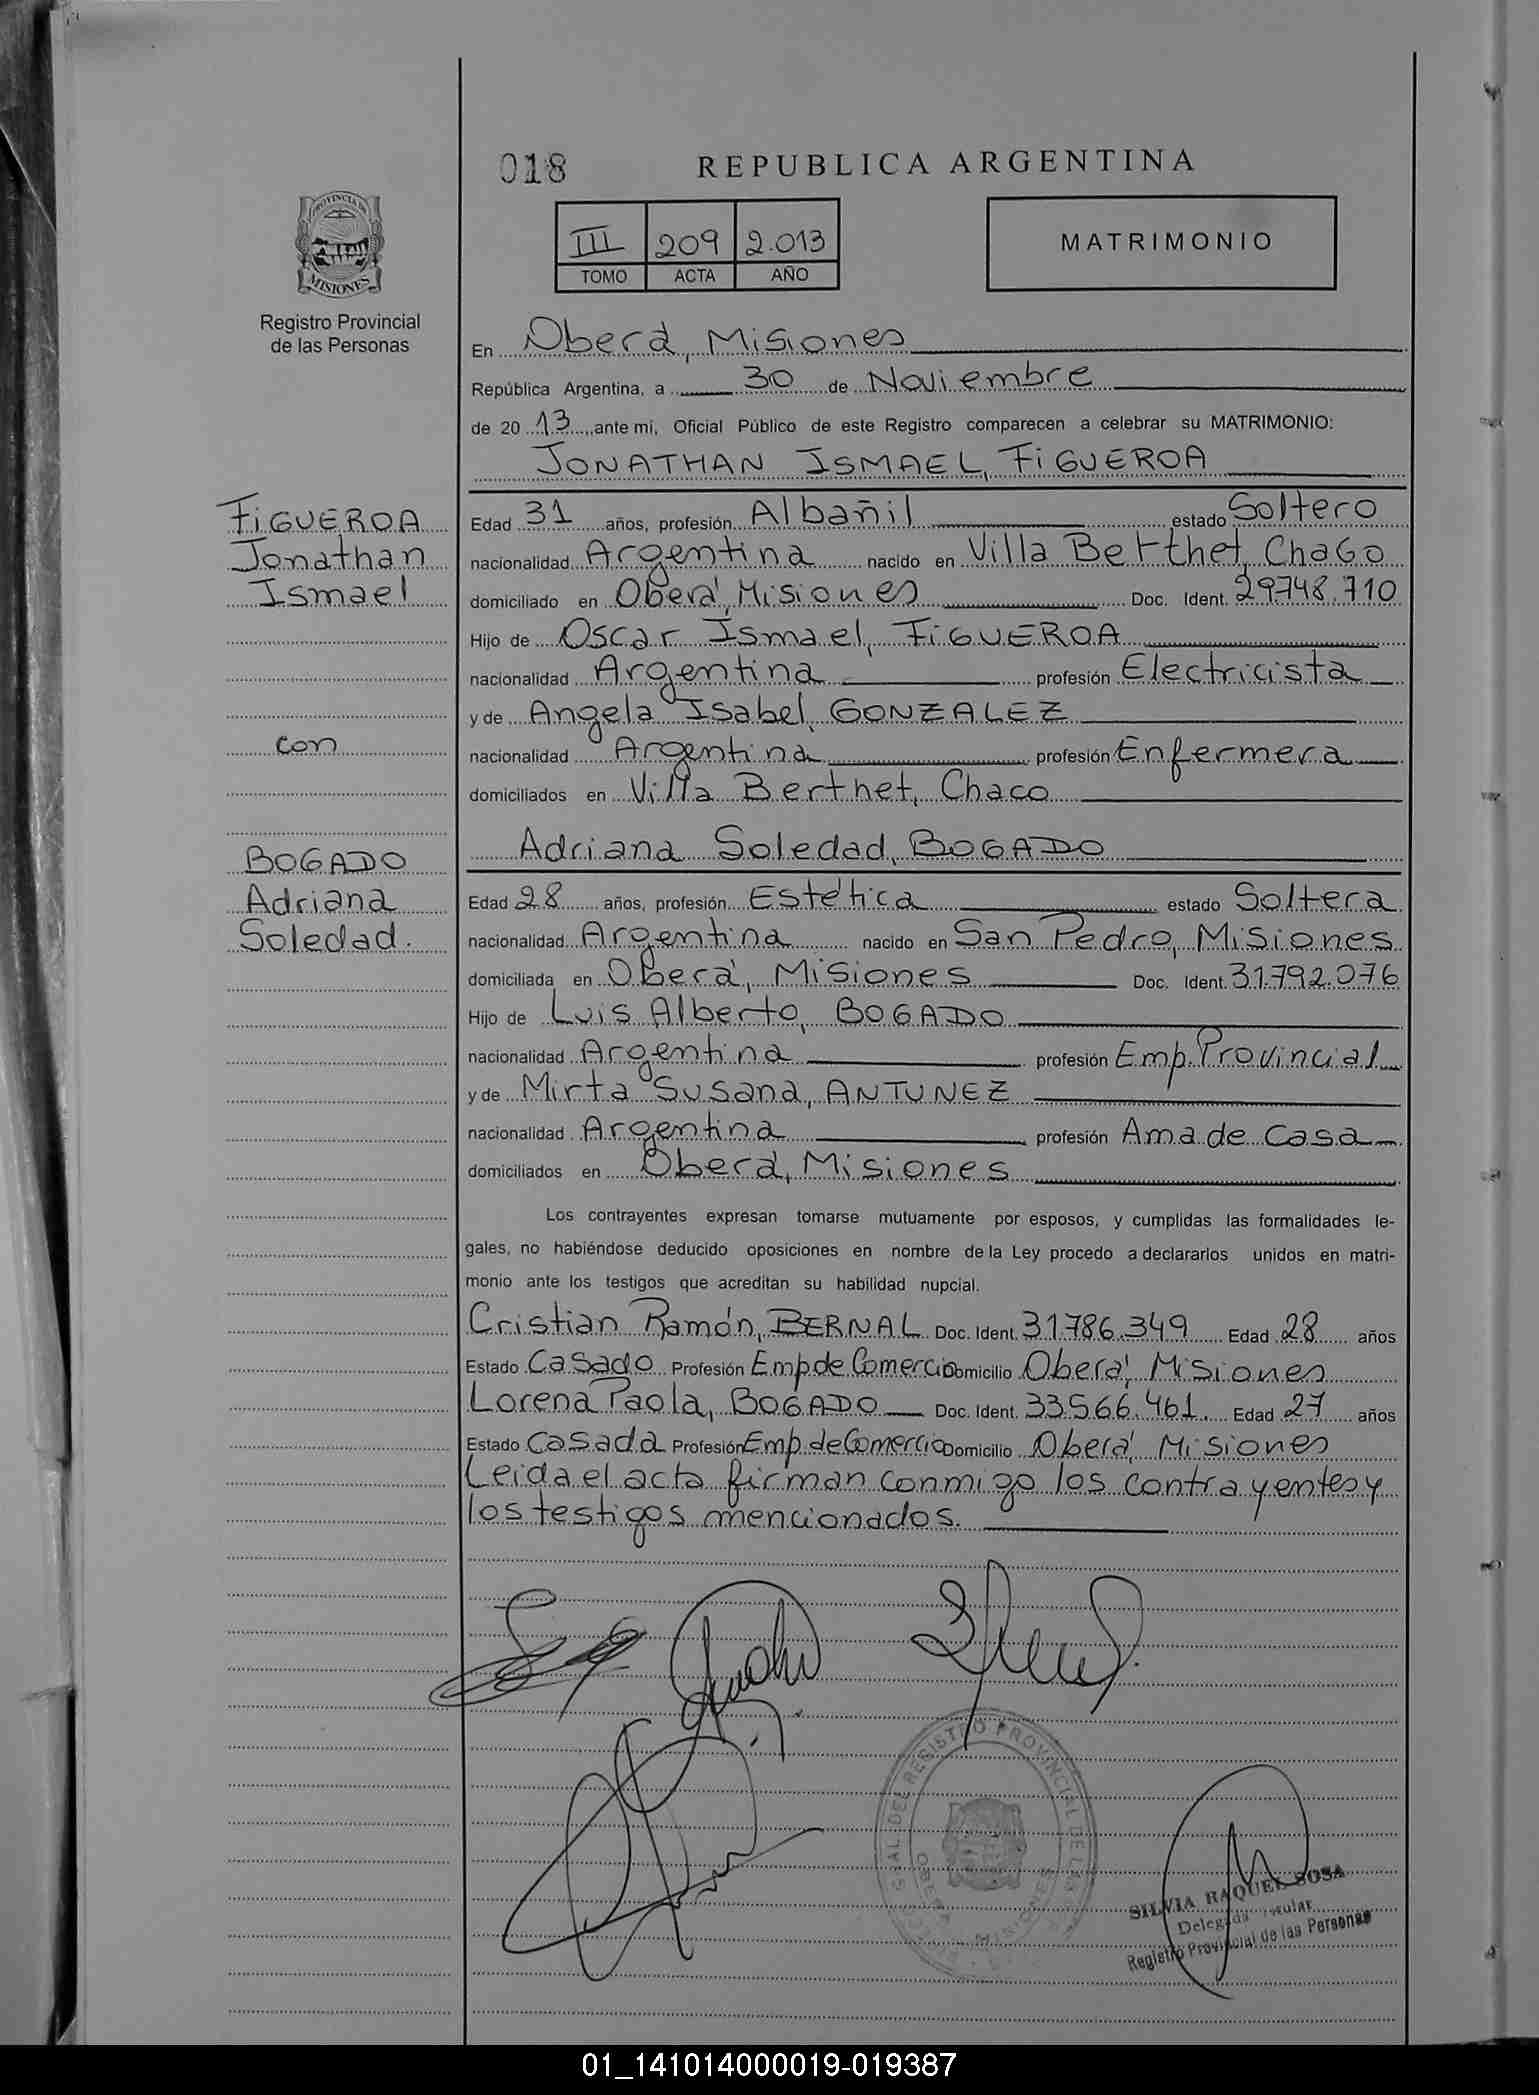 018
REPUBLICA ARGENTINA
PROVINCIA DE
MISIONES
Registro Provincial
de las Personas
III 209 2.013
TOMO ACTA AÑO
MATRIMONIO
En Oberá, Misiones
República Argentina, a 30 de Noviembre
de 2013, ante mi, Oficial Público de este Registro comparecen a celebrar su MATRIMONIO:
JONATHAN ISMAEL, FiGUEROA
FiGUEROA
Jonathan
Ismael
con
BOGADO
Adriana
Soledad.
Edad 31 años, profesión Albañil estado Soltero
nacionalidad Argentina nacido en Villa Berthet, Chaco
domiciliado en Oberá, Misiones Doc. Ident. 29748.710
Hijo de Oscar Ismael, FiGUEROA
nacionalidad Argentina profesión Electricista
y de Angela Isabel, GONZALEZ
nacionalidad Argentina profesión Enfermera
domiciliados en Villa Berthet, Chaco
Adriana Soledad, BOGADO
Edad 28 años, profesión Estética estado Soltera
nacionalidad Argentina nacido en San Pedro, Misiones
domiciliada en Oberá, Misiones Doc. Ident. 31.792.076
Hijo de Luis Alberto, BOGADO
nacionalidad Argentina profesión Emp. Provincial
y de Mirta Susana, ANTUNEZ
nacionalidad Argentina profesión Ama de Casa
domiciliados en Oberá, Misiones
Los contrayentes expresan tomarse mutuamente por esposos, y cumplidas las formalidades le-
gales, no habiéndose deducido oposiciones en nombre de la Ley procedo a declararlos unidos en matri-
monio ante los testigos que acreditan su habilidad nupcial.
Cristian Ramón, BERNAL Doc. Ident. 31786.349 Edad 28 años
Estado Casado Profesión Emp de Comercio Domicilio Oberá, Misiones
Lorena Paola, BOGADO Doc. Ident. 33.566.461. Edad 27 años
Estado Casada Profesión Emp. de Comercio Domicilio Oberá, Misiones
Leida el acta firman conmigo los contrayentes y
los testigos mencionados.
GRAL DEL REGISTRO PROVINCIAL DE LAS
OBERA MISIONES
SILVIA RAQUEL SOSA
Delegada Titular
Registro Provincial de las Personas
01_141014000019-019387